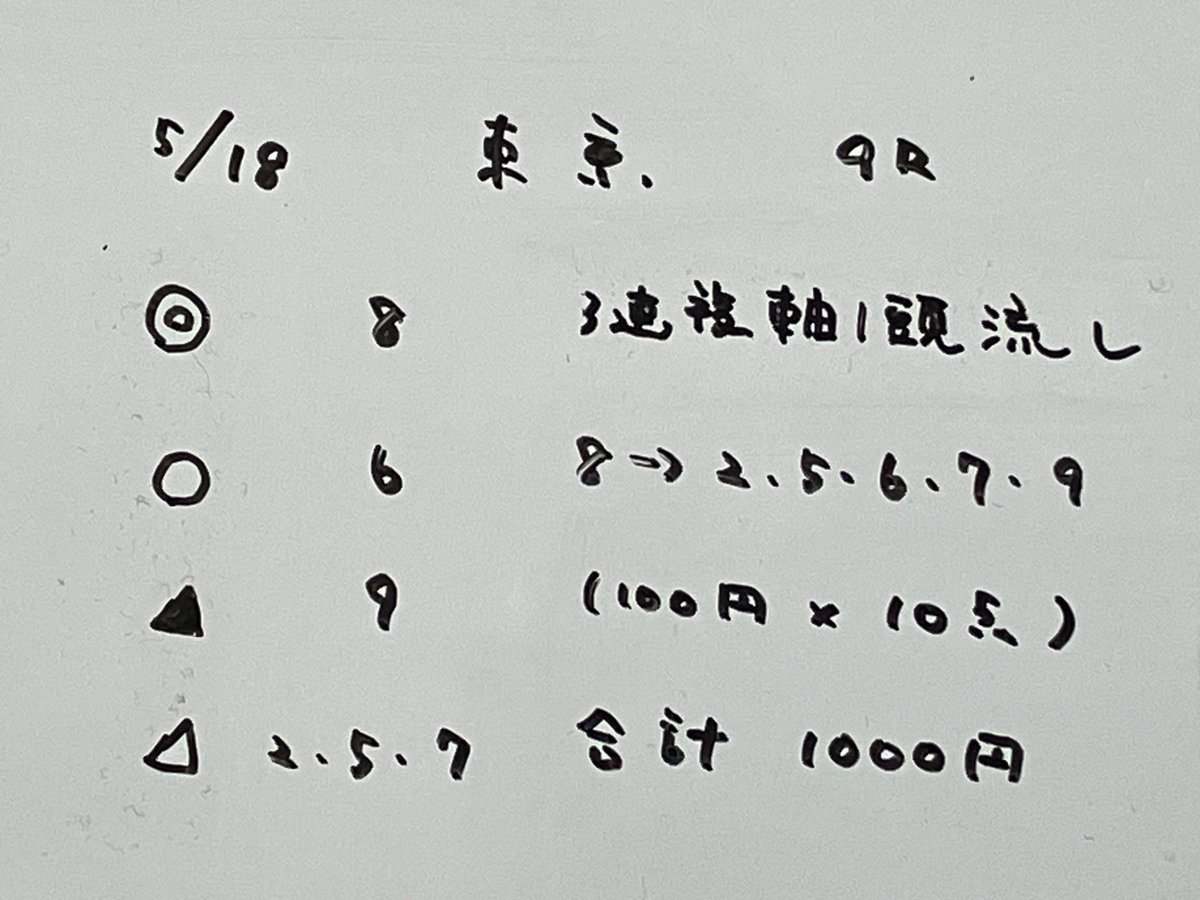 5/18 東京. 9R
◎ 8 3連複軸1頭流し
○ 6 8→2.5.6.7.9
▲ 9 (100円×10点)
△ 2.5.7 合計 1000円